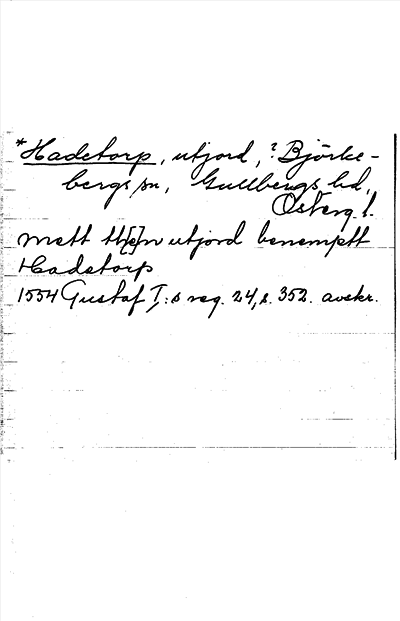 *Hadetorp, utjord, ? Björke-
bergs sn, Gullbergs hd,
Österg. l.
mett th[e]n utjord benemptt
Hadetorp
1554 Gustaf I:s reg. 24, s. 352. avskr.